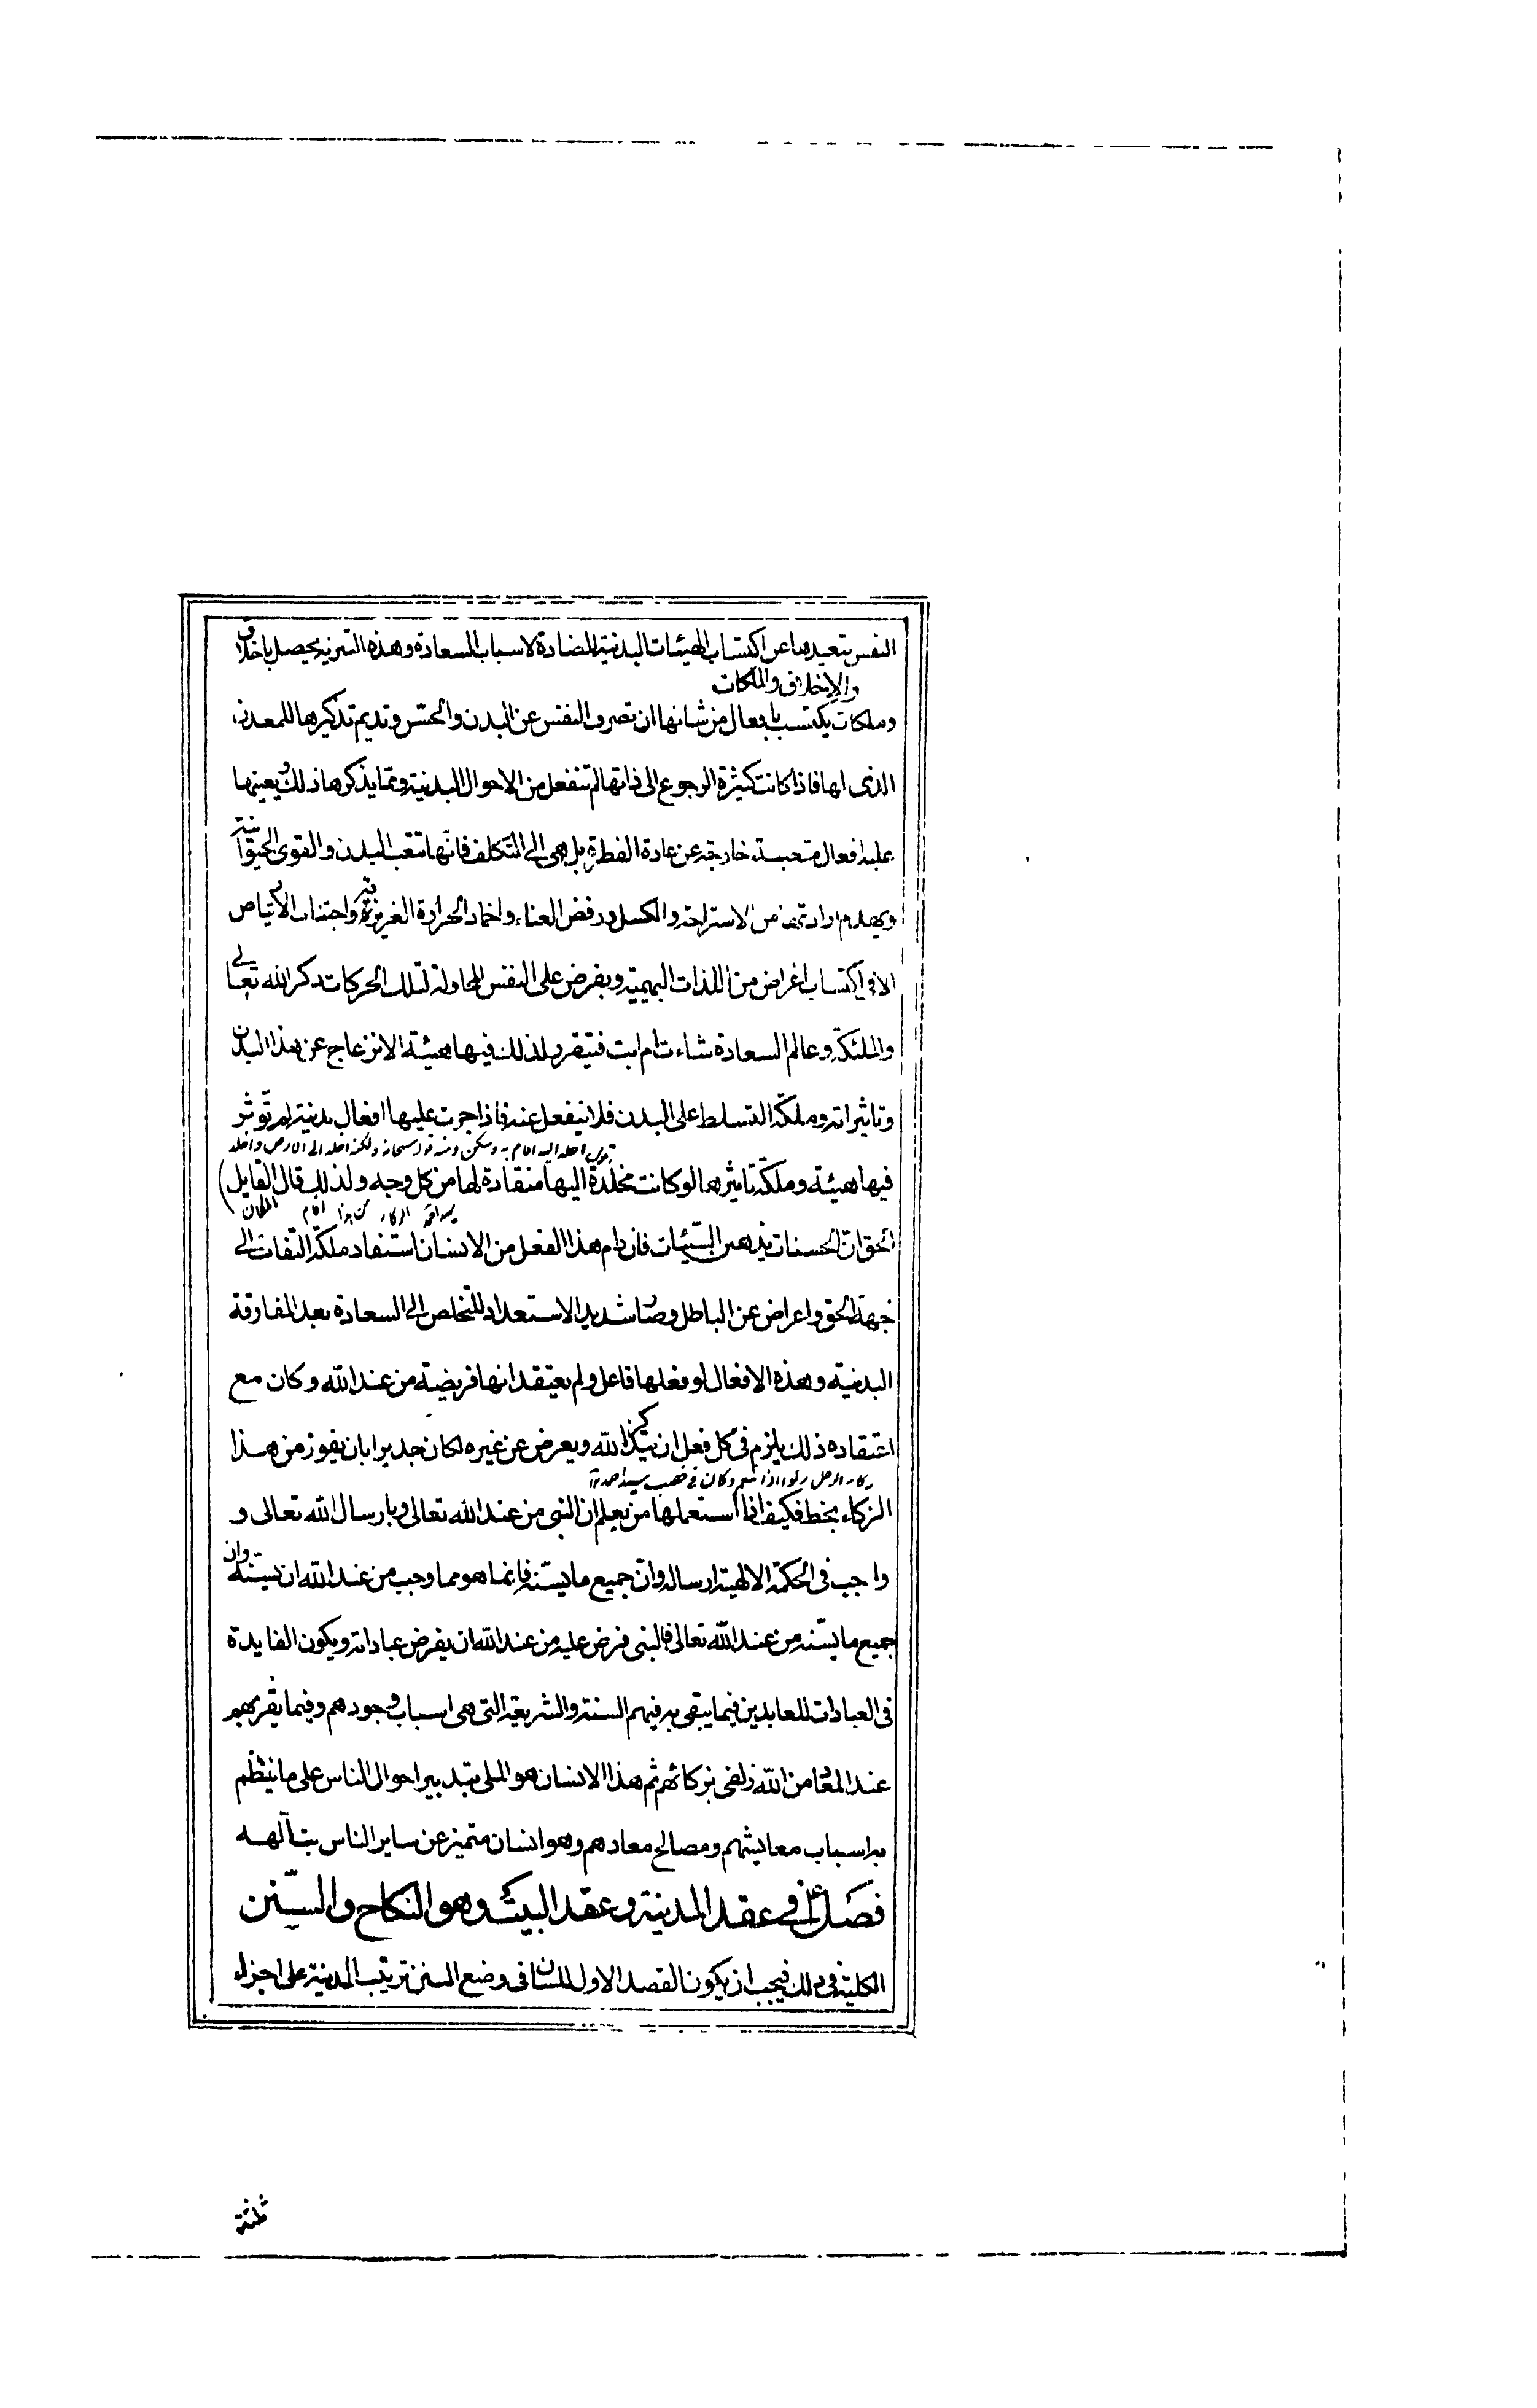 النفس تبعيدها عن اكتساب الهيئات البدنية المضادة لاسباب السعادة وهذه التنزيه يحصل باخلاق
والاخلاق والملكات
وملكات يكتسب بافعال من شانها ان تصرف النفس عن البدن والحس وتديم تذكيرها للمعدن
الذى لها فاذا كانت كثيرة الرجوع الى ذاتها لم تنفعل من الاحوال البدنية ومما يذكرها ذلك ويعينها
عليه افعال متعبة خارجة عن عادة الفطرة بل هى الى التكلف فانها تتعب البدن والقوى الحيوانية
ويهدم ارادتهما من الاستراحة والكسل ورفض العناء واخماد الحرارة الغريزية واجتناب الارتياض
الا فى اكتساب اغراض من اللذات البهيمية ويفرض على النفس المحاولة لتلك الحركات ذكر الله تعالى
والملئكة وعالم السعادة شاءت ام ابت فيتقرر لذلك فيها هيئة الانزعاج عن هذا البدن
وتاثيراته وملكة التسلط على البدن فلا ينفعل عنه فاذا جرت عليها افعال بدنية لم تؤثر
اخلد اليه اقام به وسكن ومنه قوله سبحانه ولكنه اخلد الى الارض واخلد
فيها هيئة وملكة تاثيرها لو كانت مخلدة اليها منقادة لها من كل وجه ولذلك قال القايل
اقام بالمكان
الحق ان الحسنات يذهبن السيئات فان دام هذا الفعل من الانسان استفاد ملكة التفات الى
جهة الحق واعراض عن الباطل وصار شديد الاستعداد للتخلص الى السعادة بعد المفارقة
البدنية وهذه الافعال لو فعلها فاعل ولم يعتقد انها فريضة من عند الله وكان مع
اعتقاده ذلك يلزم فى كل فعل ان يتذكر الله ويعرض عن غيره لكان جديرا بان يفوز من هذا
الزكاء بخط فكيف اذا استعملها من يعلم ان النبى من عند الله تعالى وبارسال الله تعالى و
واجب فى الحكمة الالهية ارساله وان جميع ما يسنه فانما هو مما وجب من عند الله ان يسنه وان
جميع ما يسنه من عند الله تعالى فالنبى فرض عليه من عند الله ان يفرض عباداته ويكون الفايدة
فى العبادات للعابدين فيما يبقى به فيهم السنة والشريعة التى هى اسباب وجودهم وفيما يقربهم
عند المعاد من الله زلفى بزكائهم ثم هذا الانسان هو الملى بتدبير احوال الناس على ما ينتظم
به اسباب معايشهم ومصالح معادهم وهو انسان متميز عن ساير الناس بتألهه
فصل فى عقد المدينة وعقد البيت وهو النكاح والسنن
الكلية فى ذلك فيجب ان يكون القصد الاول للسان فى وضع السنن ترتيب المدينة على اجزاء
ثلثة